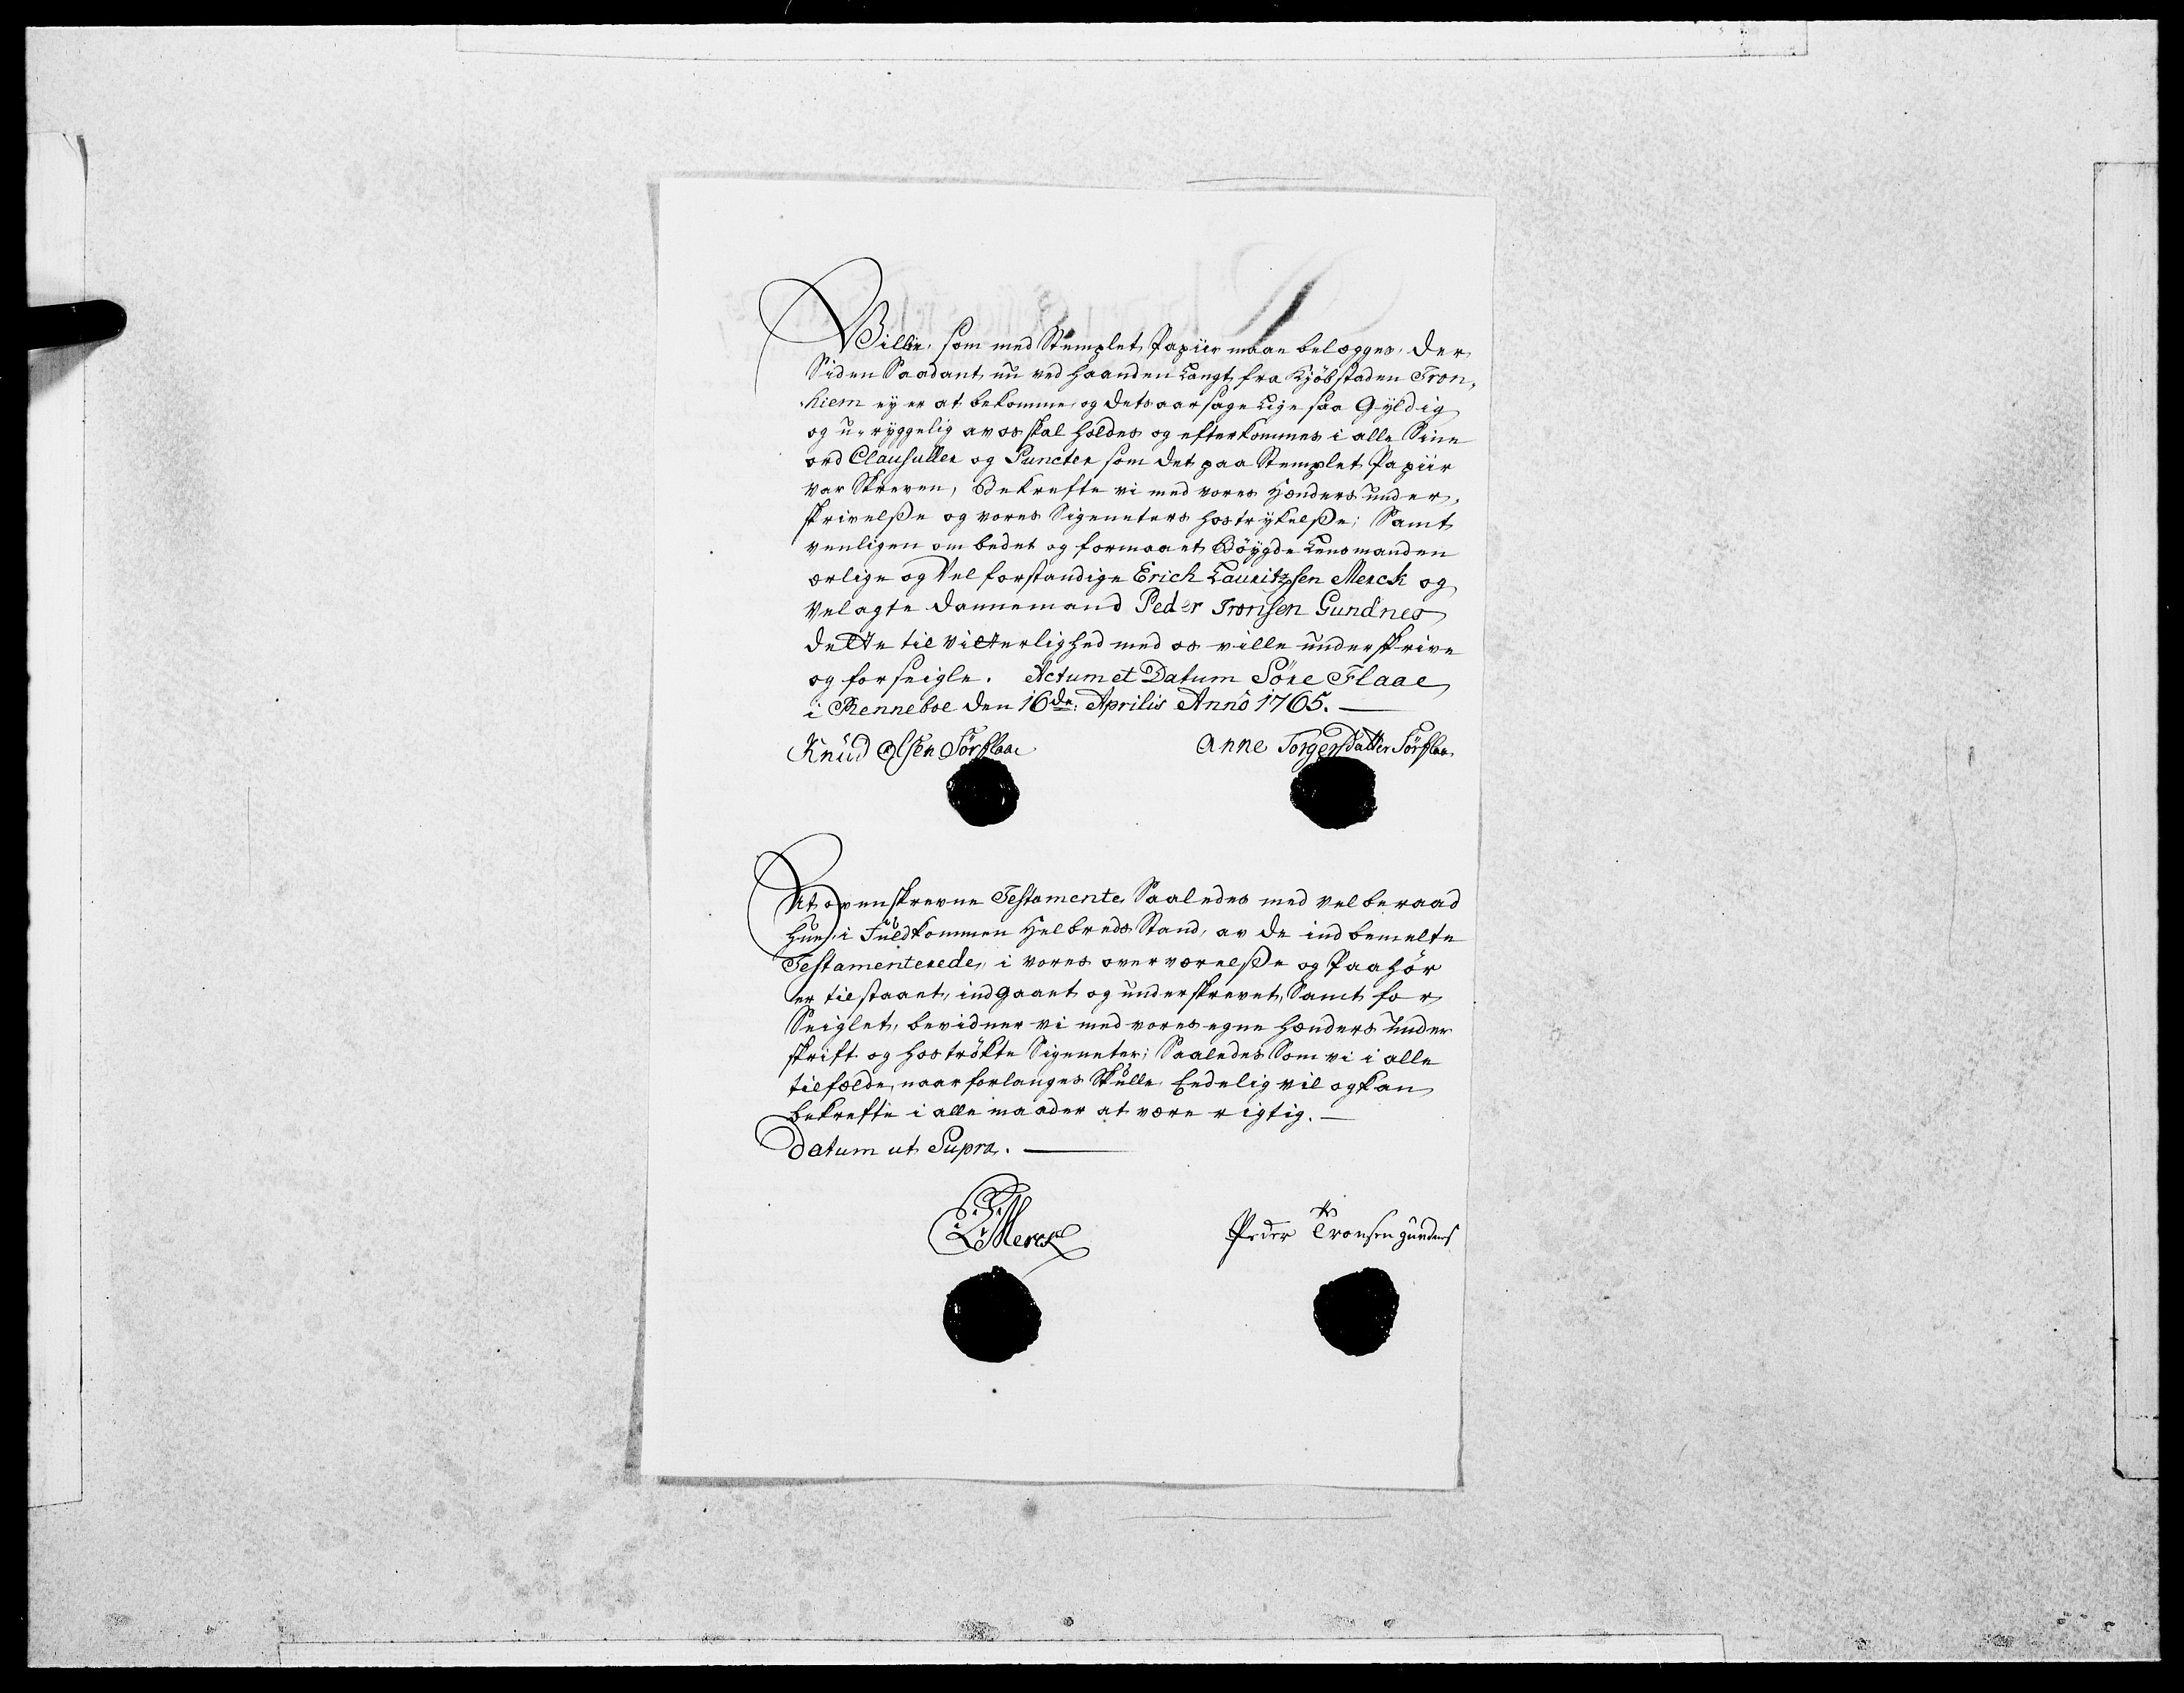 Villie, som med Stemplet Papiir maae belægges, der
Siden Saadant nu ved haanden Langt fra Kjöbstaden Tron,
hiem ey er at bekomme, og detsaarsage Lige saa Gyldig
og u-ryggelig av os skal holdes og efterkommes i alle Sine
ord Clausuller og Puncter som det paa Stemplet Papiir
var Skreven, Bekrefte vi med vores Hænders under,
skrivelße og vores Sigeneters hostrykelße; Samt
venligen om bedet og formaaet Böygde Lensmanden
ærlige og Vel forstandige Erich Lauritzsen Merck og
Velagte Dannemand Peder Tronsen Gundnes
dette til Vitterlighed med os ville underskrive
og forseigle. Actum et Datum Söre Flaae
i Renneboe den 16de: Aprilis Anno 1765.
Knud Olsen Sörflaae
Anne Torgersdatter Sörflaa
At ovenskrevne Testamente Saaledes med velberaad
Hue, i Fuldkommen Helbreds Stand, av de indbemelte
Testamenterede, i vores overværelße og Paahör
er tilstaaet, indgaaet og underskrevet, Samt for
Seiglet, bevidner vi med vores egne hænders under
skrift og hoströkte Sigeneter; Saaledes Som vi i alle
tilfælde, naar forlanges Skulle Eedelig vil og kan
bekrefte i alle maader at være rigtig.
Datum ut Supra.
E L Merck
Peder Tronsen gundnes